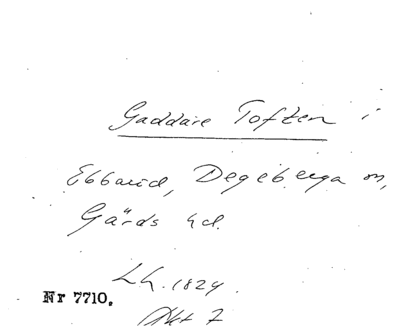 Gaddare Toften i
Ebbarid, Degeberga sn,
Gärds hd.
Lh. 1824.
Nr 7710.
Akt 7